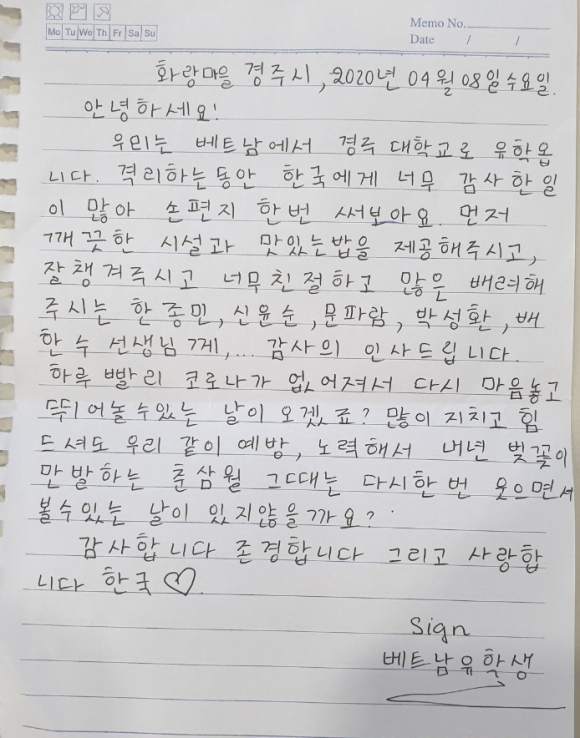 Memo No.
Mo Tu We Th Fr Sa Su
Date / /
화랑마을 경주시, 2020년 04월 08일수요일.
안녕하세요!
우리는 베트남에서 경주 대학교로 유학옵
니다. 격리하는동안 한국에게 너무 감사한일
이 많아 손편지 한번 써보아요. 먼저
깨끗한 시설과 맛있는밥을 제공해주시고,
잘챙겨주시고 너무친절하고 많은 배려해
주시는 한종민, 신윤순, 문파람, 박성환, 배
한수 선생님께,... 감사의 인사드립니다.
하루 빨리 코로나가 없어져서 다시 마음놓고
뛰어놀수있는 날이 오겠죠? 많이 지치고 힘
드셔도 우리 같이 예방, 노력해서 내년 벚꽃이
만발하는 춘삼월 그때는 다시한번 웃으면서
볼수있는 날이 있지않을까요?
감사합니다 존경합니다 그리고 사랑합
니다 한국♡.
Sign
베트남유학생